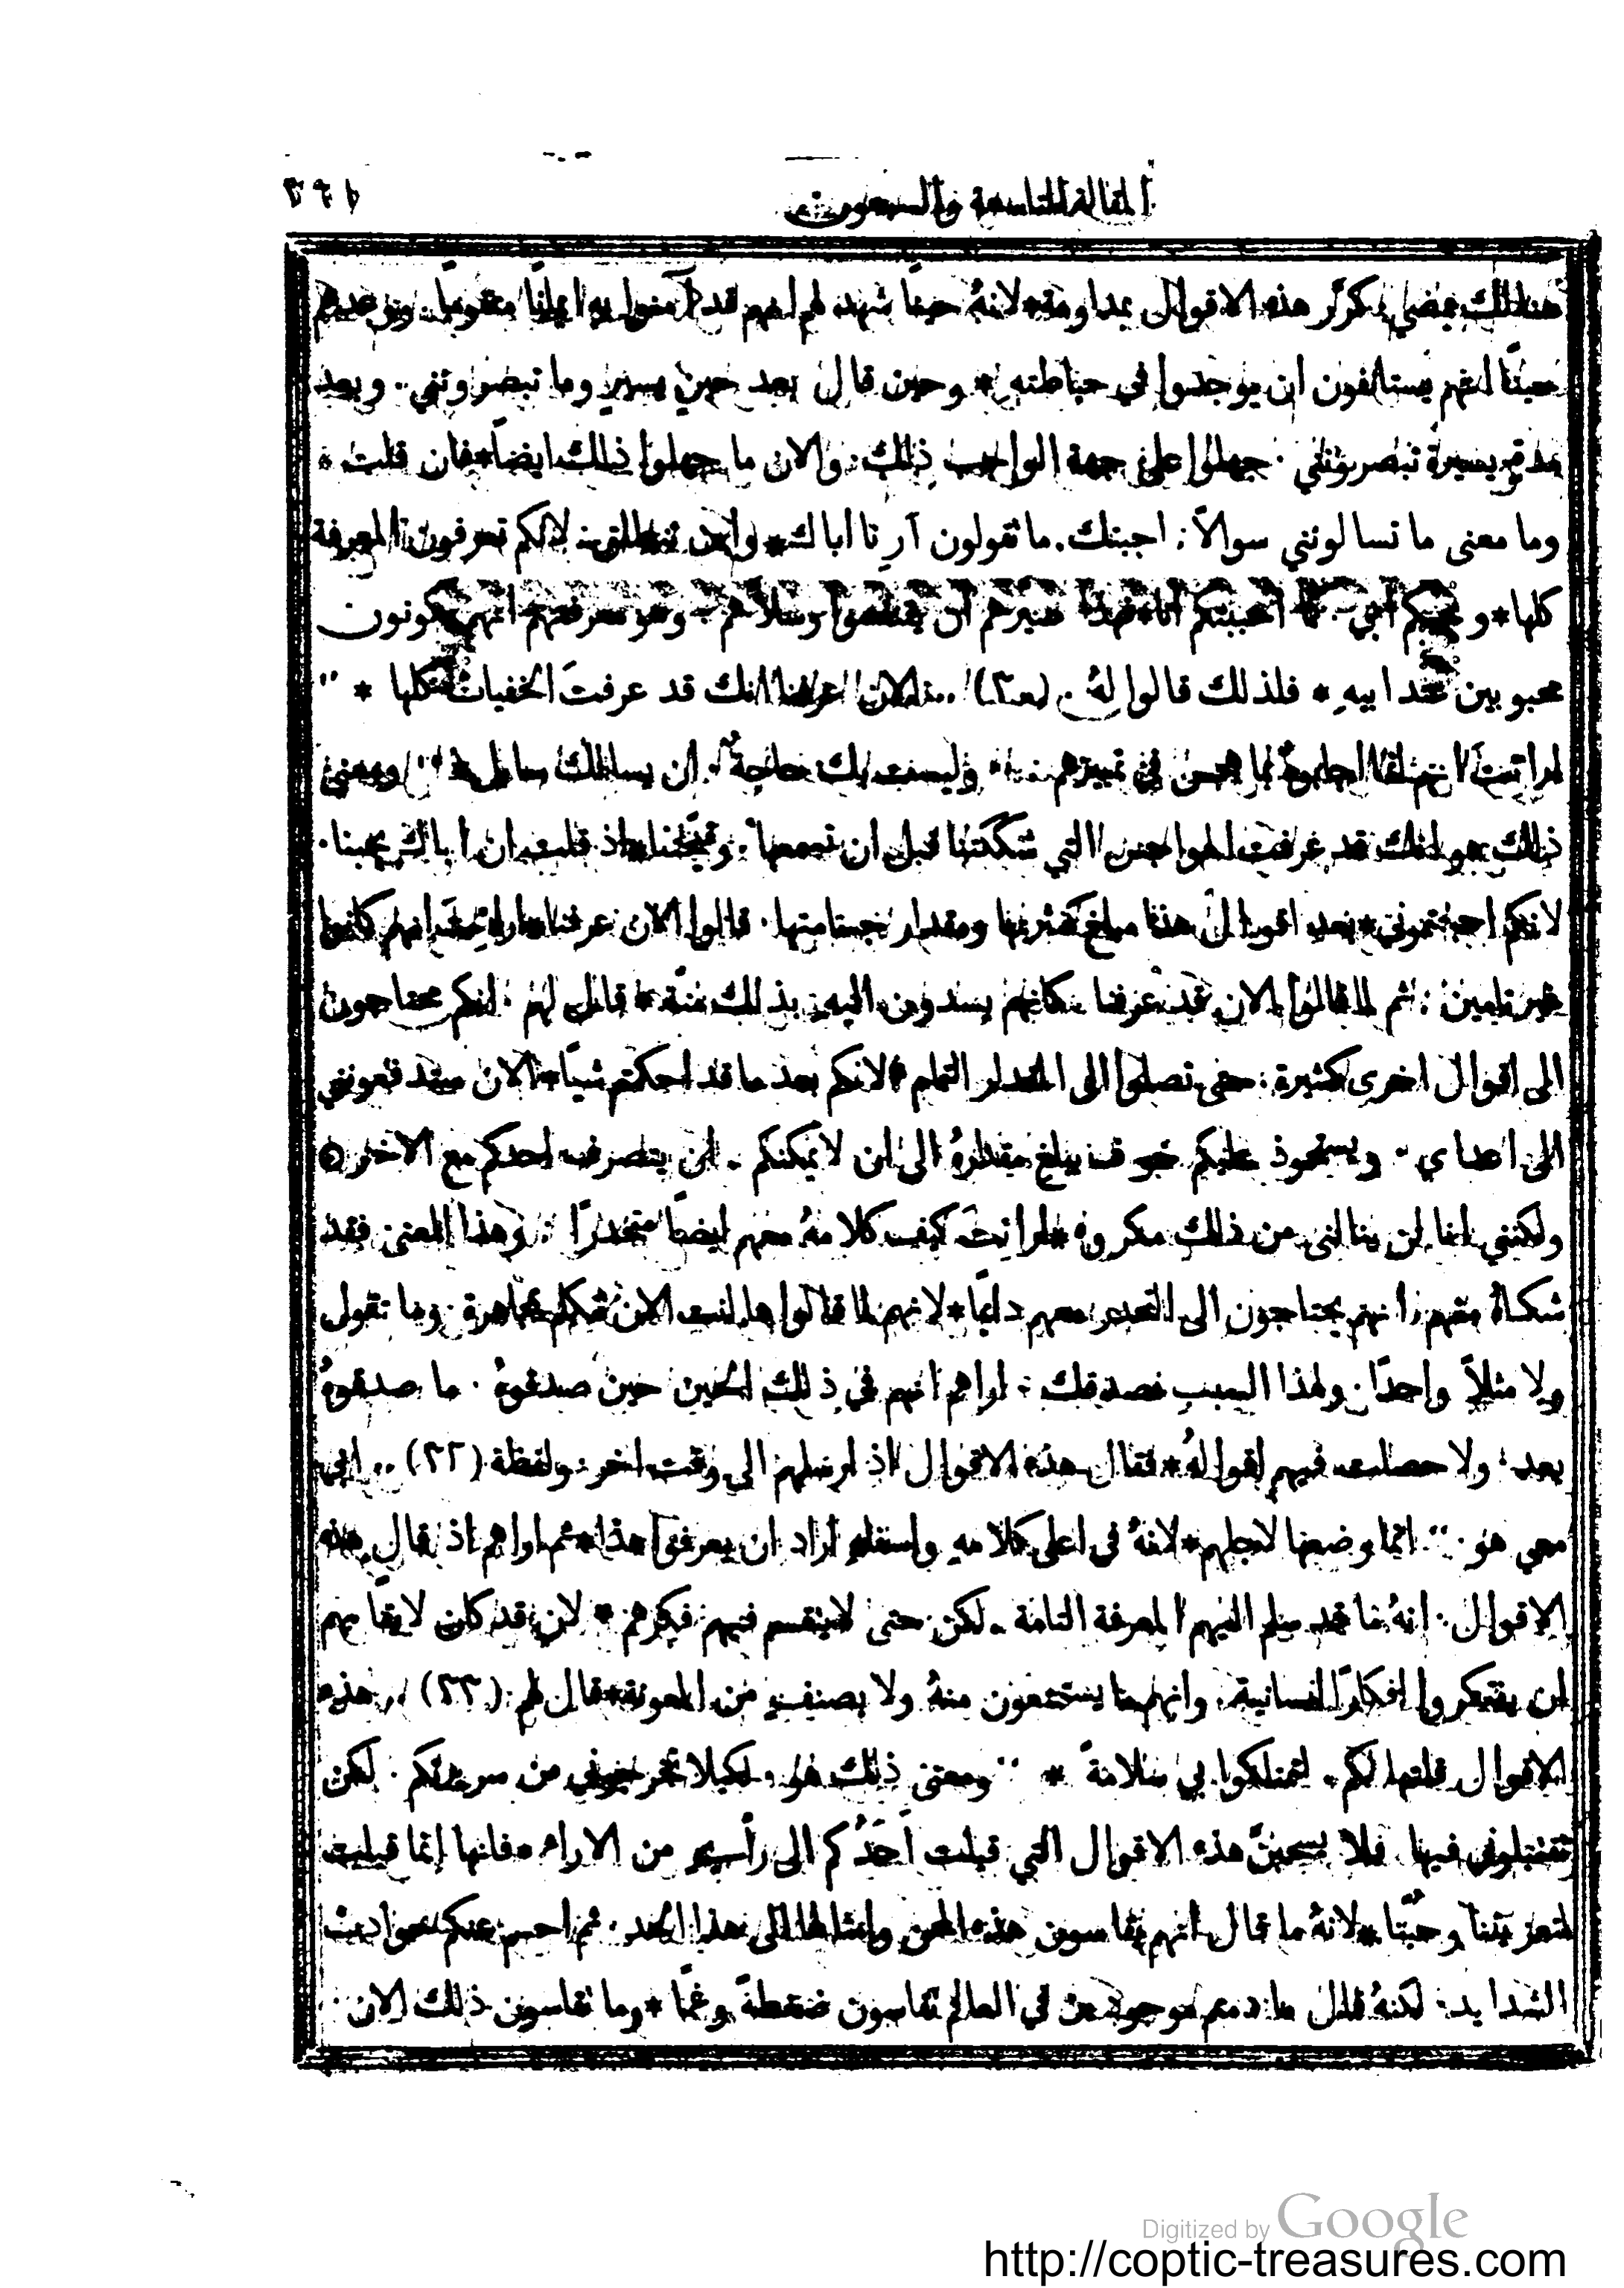 المقالة التاسعة والسبعون
هنالك يمضي يكرّر هذه الاقوال بمداومة * لانهُ حينا شهد لهم انهم قد آمنوا به ايمانًا مقومًا
انهم يستانفون ان يوجدوا في حياطته * وحين قال بعد حينٍ يسيرٍ وما تبصرونني .. وبعد
مدةٍ يسيرة تبصرونني . جهلوا على جهة الواجب ذلك . والان ما جهلوا ذلك ايضًا * فان قلت .
وما معنى ما تسالونني سوالاً . اجبتك . ما تقولون ارِنا اباك * واين تنطلق . لانكم تعرفون المعرفة
كلها * و ابي احببتكم انا * فهذا وهو معرفتهم انهم يكونون
محبوبين عند ابيهِ * فلذلك قالوا لهُ . (٣٠) .. الان عرفنا انك قد عرفتَ الخفيات كلها * ..
ارايتَ في ضميرهم .. وليست بك حاجة . ان يسالك سايل * .. ومعنى
ذلك هو انك قد عرفت الهواجس التي شككتنا قبل ان تسمعها . اذ قلت ان اباك يحبنا .
لانكم احببتموني * بعد اقوال هذا مبلغ كثرتها ومقدار جسامتها . قالوا الان عرفنا * ارايتَ انهم كانوا
غير تامين . ثم لما قالوا الان قد عرفنا كانهم يسدون اليهِ بذلك منّة * قال لهم . انكم محتاجون
الى اقوال اخرى كثيرة . حتى تصلوا الى المقدار التمام * لانكم بعد ما قد احكمتم شيًا * الان ستدفعونني
الى اعداي . ويستحوذ عليكم خوف يبلغ مقدارهُ الى ان لا يمكنكم . ان يتصرف احدكم مع الاخر
ولكنني انا لن ينالني من ذلك مكروه * ارايتَ كيف كلامهُ معهم ايضًا متحدرًا . وهذا المعنى فقد
شكاهُ منهم . انهم يحتاجون الى التحدر معهم دايمًا * لانهم لما قالوا ها انت الان تتكلم مجاهرة . وما تقول
ولا مثلاً واحدًا . ولهذا السبب نصدقك . اراهم انهم في ذلك الحين حين صدقوهُ . ما صدقوهُ
بعد . ولا حصلت فيهم اقوالهُ * فقال هذه الاقوال اذ ارسلهم الى وقت اخر . ولفظة (٣٢) .. ابي
معي هو . .. انما وضعها لاجلهم * لانهُ في اعلى كلامهِ واسفلهِ اراد ان يعرفوا هذا * ثم اراهم اذ قال هذه
الاقوال . انهُ ما قد سلم اليهم المعرفة التامة . لكن حتى لا ينقسم فيهم فكرهم * لان قد كان لايقًا بهم
ان يفتكروا افكارًا انسانية . وانهم ما يستمتعون منهُ ولا بصنفٍ من المعونة * قال لهم . (٣٣) .. هذه
الاقوال قلتها لكم . لتمتلكوا بي سلامةً * .. ومعنى ذلك هو . لكيلا تخرجوني من سريرتكم . لكن
تقتبلوني فيها . فلا يسحبنَّ هذه الاقوال التي قيلت اَحدُكم الى رأيٍ من الاراء . فانها انما قيلت
لتعزيتنا وحبّنا * لانهُ ما قال انهم يقاسون هذه المحن وامثالها الى هذا الحد . ثم احسم عنكم حوادث
الشدايد . لكنهُ قال ما دمتم موجودين في العالم تقاسون ضغطةً وغمًّا * وما تقاسون ذلك الان .
Digitized by Google
http://coptic-treasures.com